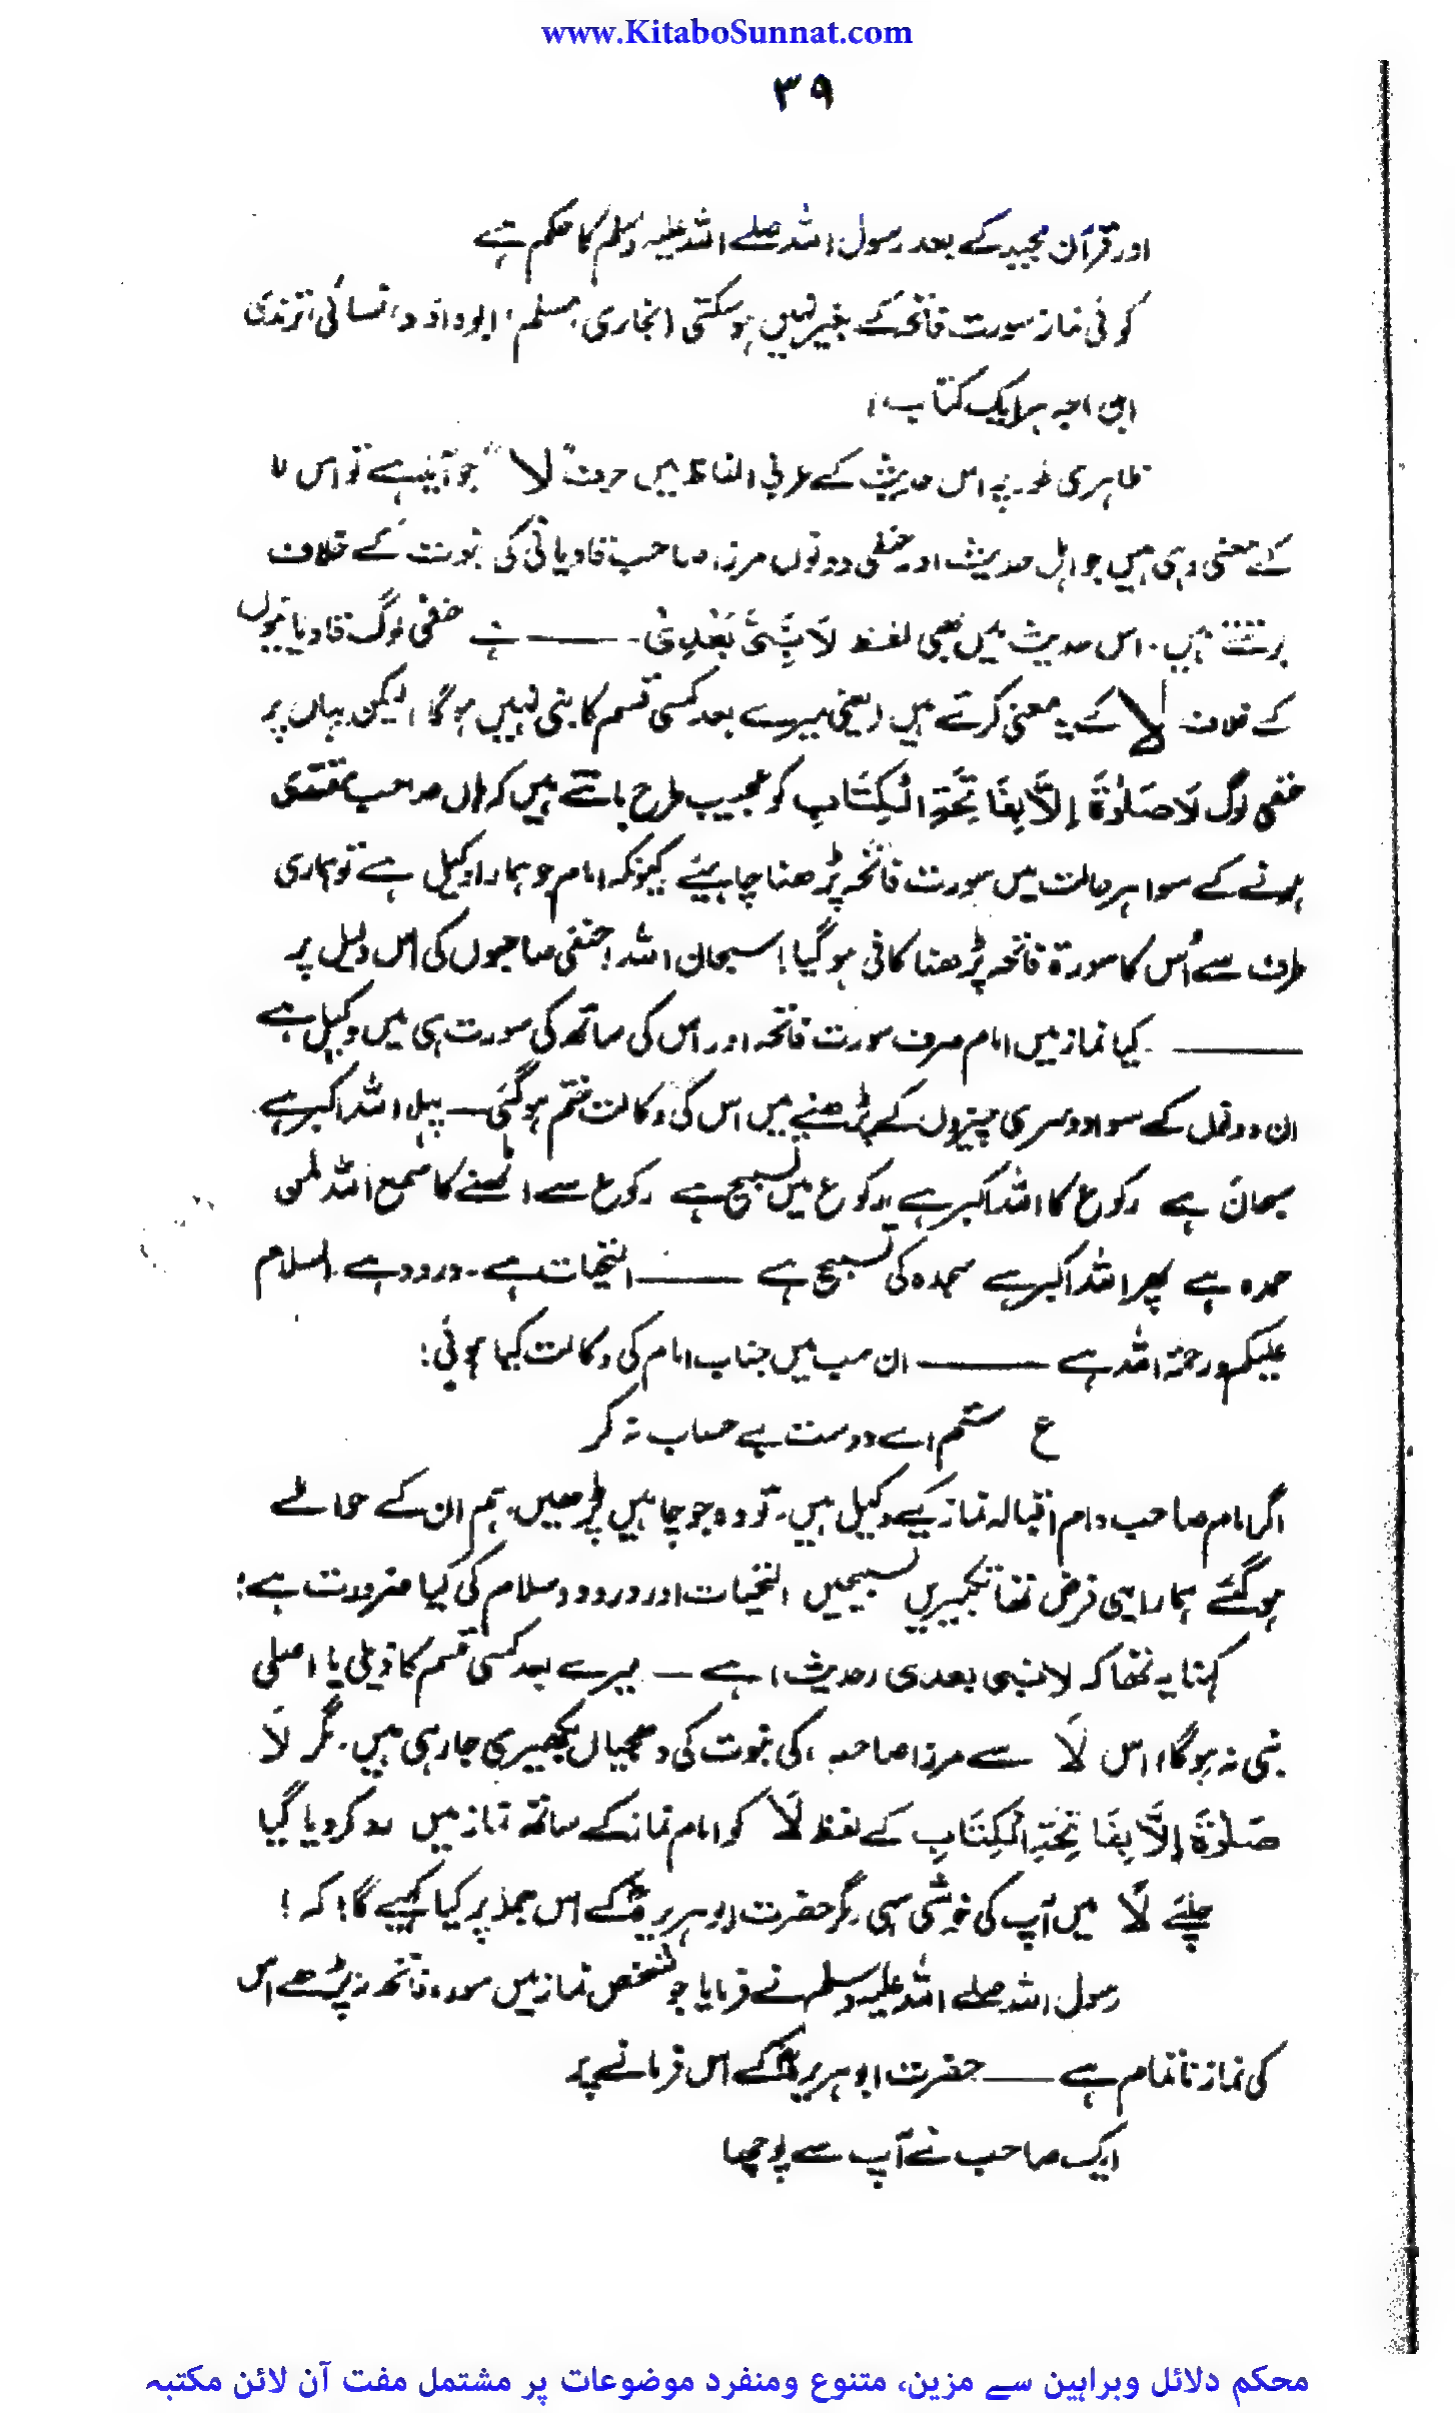 www.KitaboSunnat.com
۳۹
اور قرآن مجید کے بعد رسول اللہ صلے اللہ علیہ وسلم کا حکم ہے
کوئی نماز سورت فاتحہ کے بغیر نہیں ہو سکتی (بخاری، مسلم، ابوداؤد، نسائی، ترمذی
ابن ماجہ ہر ایک کتاب)
ظاہری طور پہ اس حدیث کے عربی الفاظ میں حرف "لا" جو آیا ہے تو اس لا
کے معنی وہی ہیں جو اہل حدیث اور حنفی دونوں مرزا صاحب قادیانی کی نبوت کے خلاف
برتتے ہیں۔ اس حدیث میں بھی لفظ لَا نَبِیَّ بَعْدِیْ۔ —— ہے حنفی لوگ قادیانیوں
کے خلاف لا کے یہ معنی کرتے ہیں (یعنی میرے بعد کسی قسم کا نبی نہیں ہوگا) لیکن یہاں پر
حنفی لوگ لَا صَلٰوۃَ اِلَّا بِفَاتِحَۃِ الْکِتَابِ کو عجیب طرح مانتے ہیں کہ ہاں صاحب مقتدی
ہونے کے سوا ہر حالت میں سورت فاتحہ پڑھنا چاہیئے کیونکہ امام جو ہمارا وکیل ہے تو ہماری
طرف سے اُس کا سورۃ فاتحہ پڑھنا کافی ہو گیا! سبحان اللہ! حنفی صاحبوں کی اس دلیل پر
—— کیا نماز میں امام صرف سورت فاتحہ اور اس کی ساتھ کی سورت ہی میں وکیل ہے
ان دونوں کے سوا دوسری چیزوں کے پڑھنے میں اس کی وکالت ختم ہو گئی — پہلا اللہ اکبر ہے
سبحان ہے رکوع کا اللہ اکبر ہے رکوع میں تسبیح ہے رکوع سے اٹھنے کا سمع اللہ لمن
حمدہ ہے پھر اللہ اکبر ہے سجدہ کی تسبیح ہے —— التحیات ہے۔ درود ہے السلام
علیکم ورحمۃ اللہ ہے —— ان سب میں جناب امام کی وکالت کیا ہوئی؛
ع ستم اے دوست بے حساب نہ کر
اگر امام صاحب دام اقبالہ نماز کے وکیل ہیں۔ تو وہ جو چاہیں پڑھیں، ہم ان کے حوالے
ہو گئے ہمارا یہی فرض تھا تکبیریں تسبیحیں التحیات اور درود و سلام کی کیا ضرورت ہے؛
کہنا یہ تھا کہ لا نبی بعدی (حدیث) ہے — میرے بعد کسی قسم کا ذیلی یا اصلی
نبی نہ ہوگا؛ اس لَا سے مرزا صاحب کی نبوت کی دھجیاں بکھیری جا رہی ہیں۔ مگر لَا
صَلٰوۃَ اِلَّا بِفَاتِحَۃِ الْکِتَابِ کے لفظ لَا کو امام نماز کے ساتھ نماز میں رد کر دیا گیا
چلیے لَا میں آپ کی خوشی سہی مگر حضرت ابوہریرہؓ کے اس جملہ پر کیا کہیے گا؛ کہ!
رسول اللہ صلے اللہ علیہ وسلم نے فرمایا جو شخص نماز میں سورہ فاتحہ نہ پڑھے اس
کی نماز ناتمام ہے —— حضرت ابوہریرہؓ کے اس فرمانے پر
ایک صاحب نے آپ سے پوچھا
محکم دلائل وبراہین سے مزین، متنوع ومنفرد موضوعات پر مشتمل مفت آن لائن مکتبہ